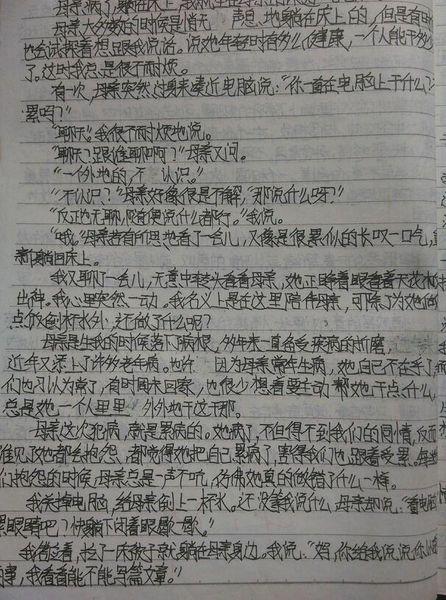 母亲病了，躺在床上，我
母亲大多数的时候是悄无 声息 地躺在床上的，但是有时
也会试探着想跟我说话。说她年轻时有多么 健康，一个人能干
了。这时我总是很不耐烦。
有一次，母亲突然 过来凑近电脑说：“你一直在电脑上干什么？
累吗？”
“聊天。”我很不耐烦地说。
“聊天？跟谁聊啊？”母亲又问。
“一个外地的，不 认识。”
“不认识？”母亲好像很是不解，“那说什么呀？”
“反正也无聊，随便说什么都行。”我说。
“哦。”母亲若有所思地看了会儿，又像是很累似的长叹一口气，
新躺回床上。
我又聊了一会儿，无意中转头看看母亲，她正睁着眼看着天花
出神。我心里突然一动。我名义上是在这里陪伴母亲，可除了为她做
点饭倒杯水外，还做了什么呢？
母亲是生我的时候落下病根，多年来一直备受疾病的折磨，
近年又添上了许多老年病。也许 因为母亲常年生病，她自己不在乎了，
们也习以为常了，有时周末回家，也很少想着要主动 帮她干点什么，
总是她一个人里里 外外地干这干那。
母亲这次犯病，就是累病的。她病了，不但得不到我们的同情，反而
谁见了她都会抱怨，都说得她把自己累病了，害得我们也跟着受累。每当
们抱怨的时候，母亲总是一声不吭，仿佛她真的做错了什么一样。
我关掉电脑，给母亲倒上一杯水。还没等我说什么，母亲却说：“看电脑
累眼睛吧？快躺下闭着眼歇一歇。”
我答应着，拉了一床被子就躺在母亲身边。我说：“妈，你给我说说你
事，我看看能不能写篇文章。”